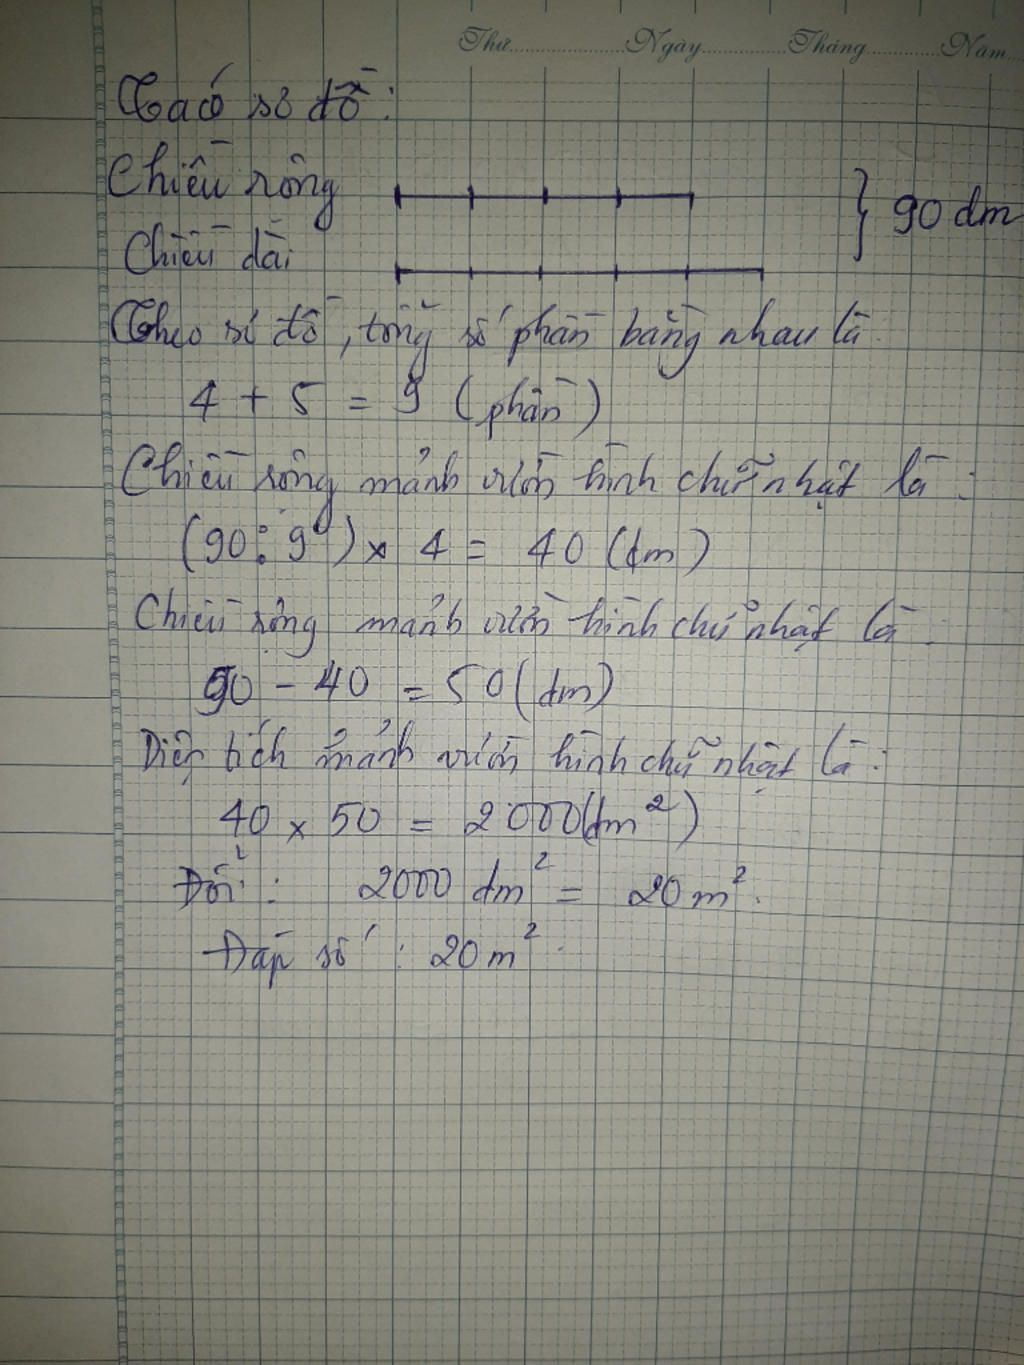 Thứ..............Ngày............Tháng..........Năm....
Ta có sơ đồ:
Chiều rộng
} 90 dm
Chiều dài
Theo sơ đồ, tổng số phần bằng nhau là
4 + 5 = 9 (phần)
Chiều rộng mảnh vườn hình chữ nhật là :
(90 : 9) x 4 = 40 (dm)
Chiều rộng mảnh vườn hình chữ nhật là
90 - 40 = 50 (dm)
Diện tích mảnh vườn hình chữ nhật là :
40 x 50 = 2000 (dm²)
Đổi : 2000 dm² = 20 m².
Đáp số : 20 m².